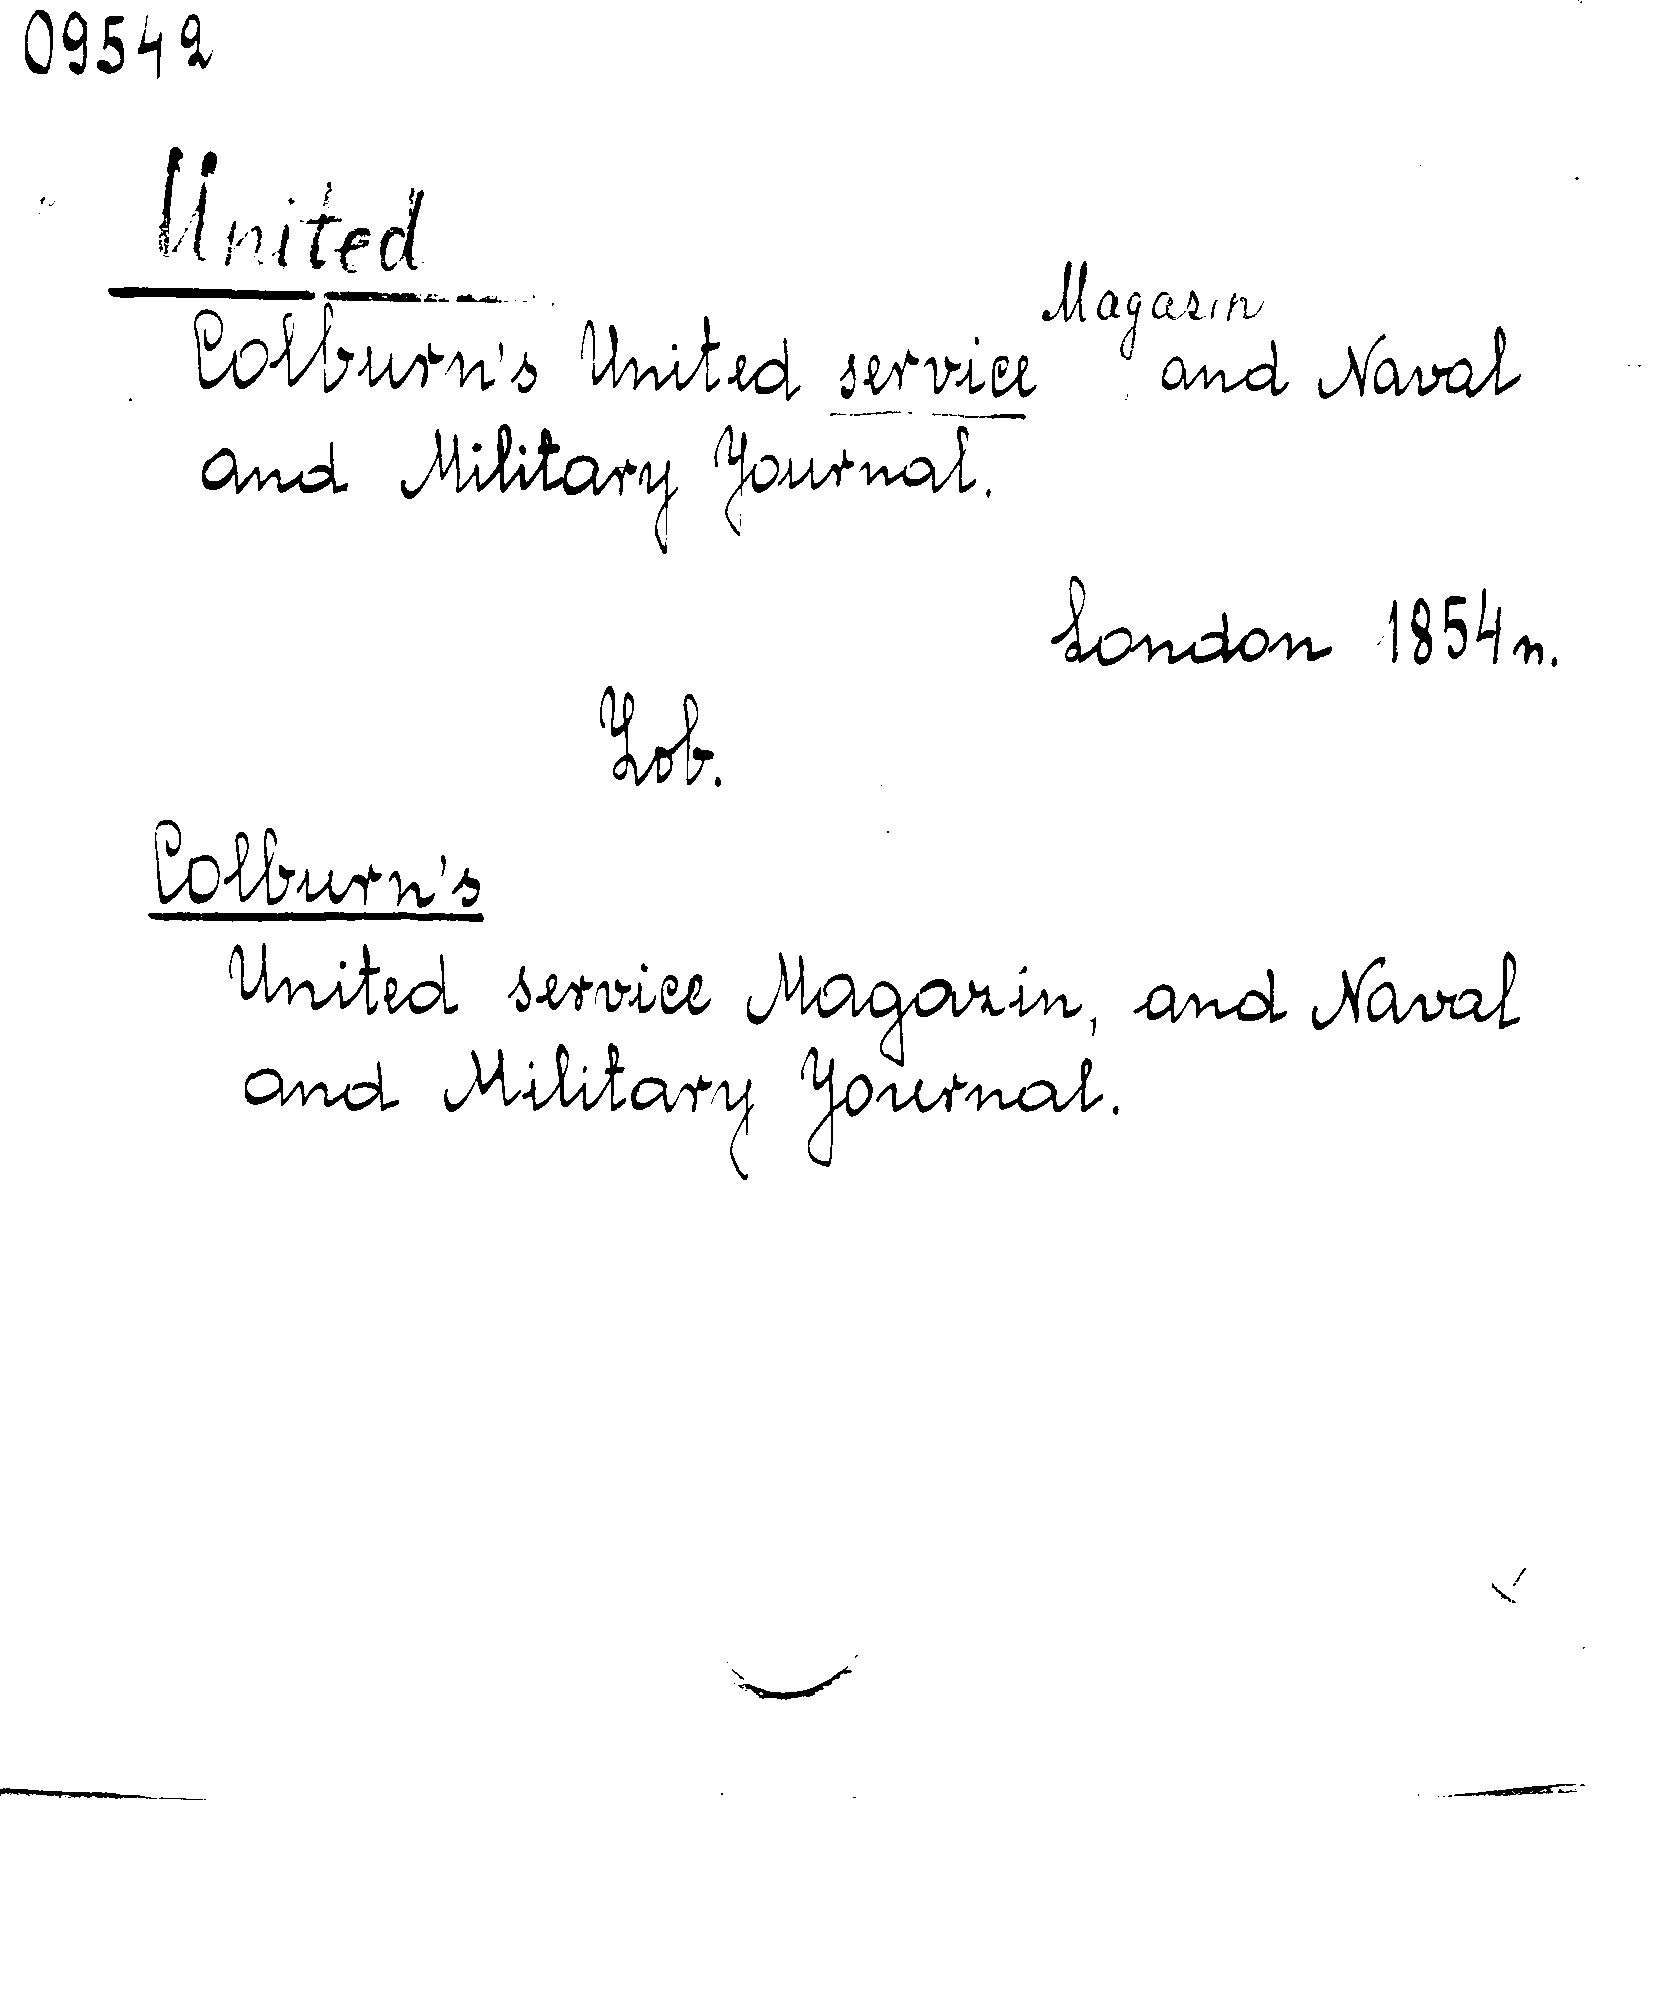 09542
United
Colburn's United service Magasin and Naval
and Military Journal.
London 1854 n.
Zob.
Colburn's
United service Magazin, and Naval
and Military Journal.